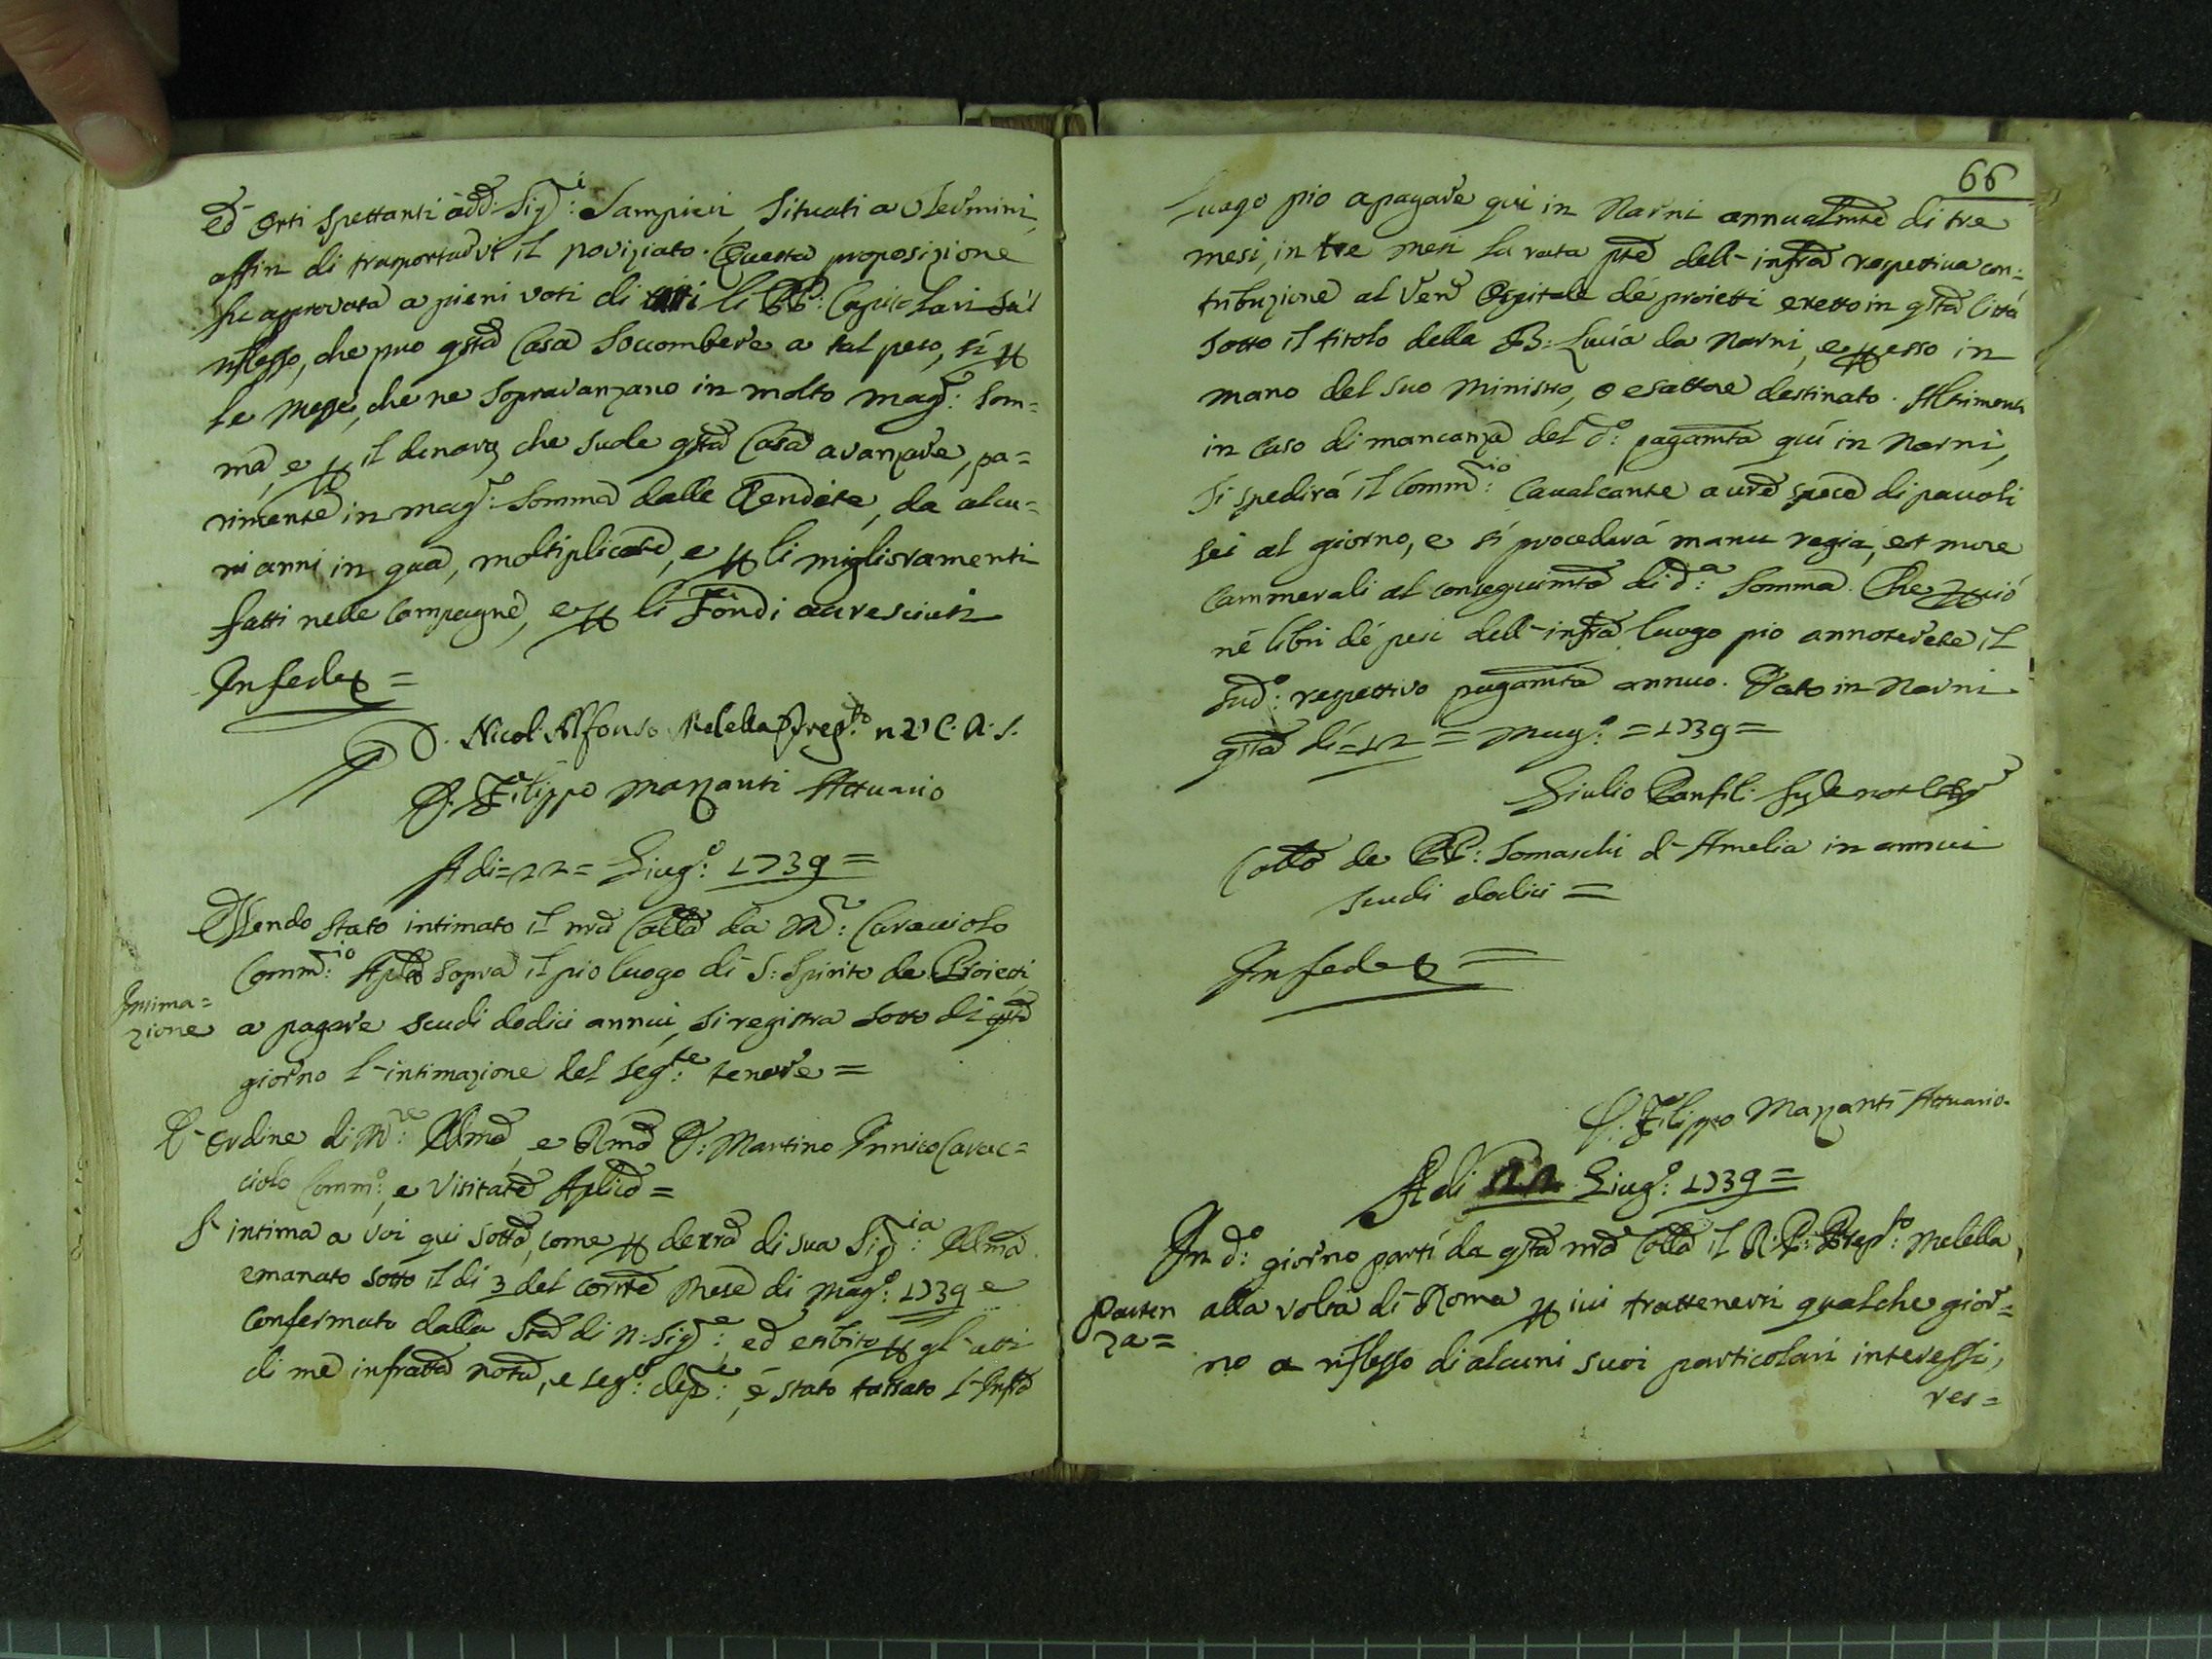 ed Orti spettanti a dd: Sig:i Sampieri, situati a Termini,
affin di trasportarvi il noviziato. Questa proposizione
fu approvata a pieni voti di tutti li PP: Capitolari sul
riflesso, che può qsta Casa soccombere a tal peso, sì p
le Messe, che ne sopravanzano in molto mag:r som=
ma, e p il denaro, che suole qsta Casa avanzare, pa=
rimente in mag:r somma dalle Rendite, da alcu=
ni anni in qua, moltiplicate, e p li miglioramenti
fatti nelle Campagne, e p li Fondi accresciuti
In fede p =
D. Nicol. Alfonso Melella Prep:to C. R. S.
D. Filippo Mazzanti Attuario
Adi = 22 = Giug:o 1739 =
Essendo stato intimato il nrō Collō da M:r Caracciolo
Comm:io Aplō sopra il pio luogo di S: Spirito de Proietti
Intima=
zione
a pagare scudi dodici annui, si registra sotto di qstō
giorno l'intimazione del seg:te tenore =
D'ordine di M:re Illmō, e Rmō D: Martino Innico Carac=
ciolo Comm:o, e Visitatē Aplicō =
S'intima a voi qui sottō, come p decrō di sua Sig:ia Illmā
emanato sotto il dì 3 del corrtē Mese di Mag:o 1739 e
confermato dalla Stā di N: Sig:e, ed esibito p gl'atti
di me infrattō notō, e seg:o dep:e, è stato tassato l'Infrō
66
Luogo pio a pagare qui in Narni annualmtē di tre
mesi, in tre mesi la rata ptē dell'infrā respettiva con=
tribuzione al Venē Ospitale de' proietti eretto in qstā Città
sotto il titolo della B: Lucia da Narni, e p esso in
mano del suo Ministro, o esattore destinato. Altrimenti
in caso di mancanza del d:o pagamtō qui in Narni,
si spedirà il Comm:io Cavalcante a vrē spese di pauoli
sei al giorno, e si procederà manu regia, et more
Cammerali al conseguimtō di d:a somma. Che p ciò
ne' libri de' pesi dell'infrō luogo pio annoterete il
sud:o respettivo pagamtō annuo. Dato in Narni
qstō dì = 12 = Mag:o = 1739 =
Giulio Panfili
Collō de PP: Somaschi d'Amelia in annui
scudi dodici =
In fede p =
D. Filippo Mazzanti Attuario
Adi 22 Giug:o 1739 =
In d:o giorno partì da qstō nrō Collō il R: P: Prep:to Melella,
Parten
za =
alla volta di Roma p ivi trattenersi qualche gior=
no a riflesso di alcuni suoi particolari interessi,
res=